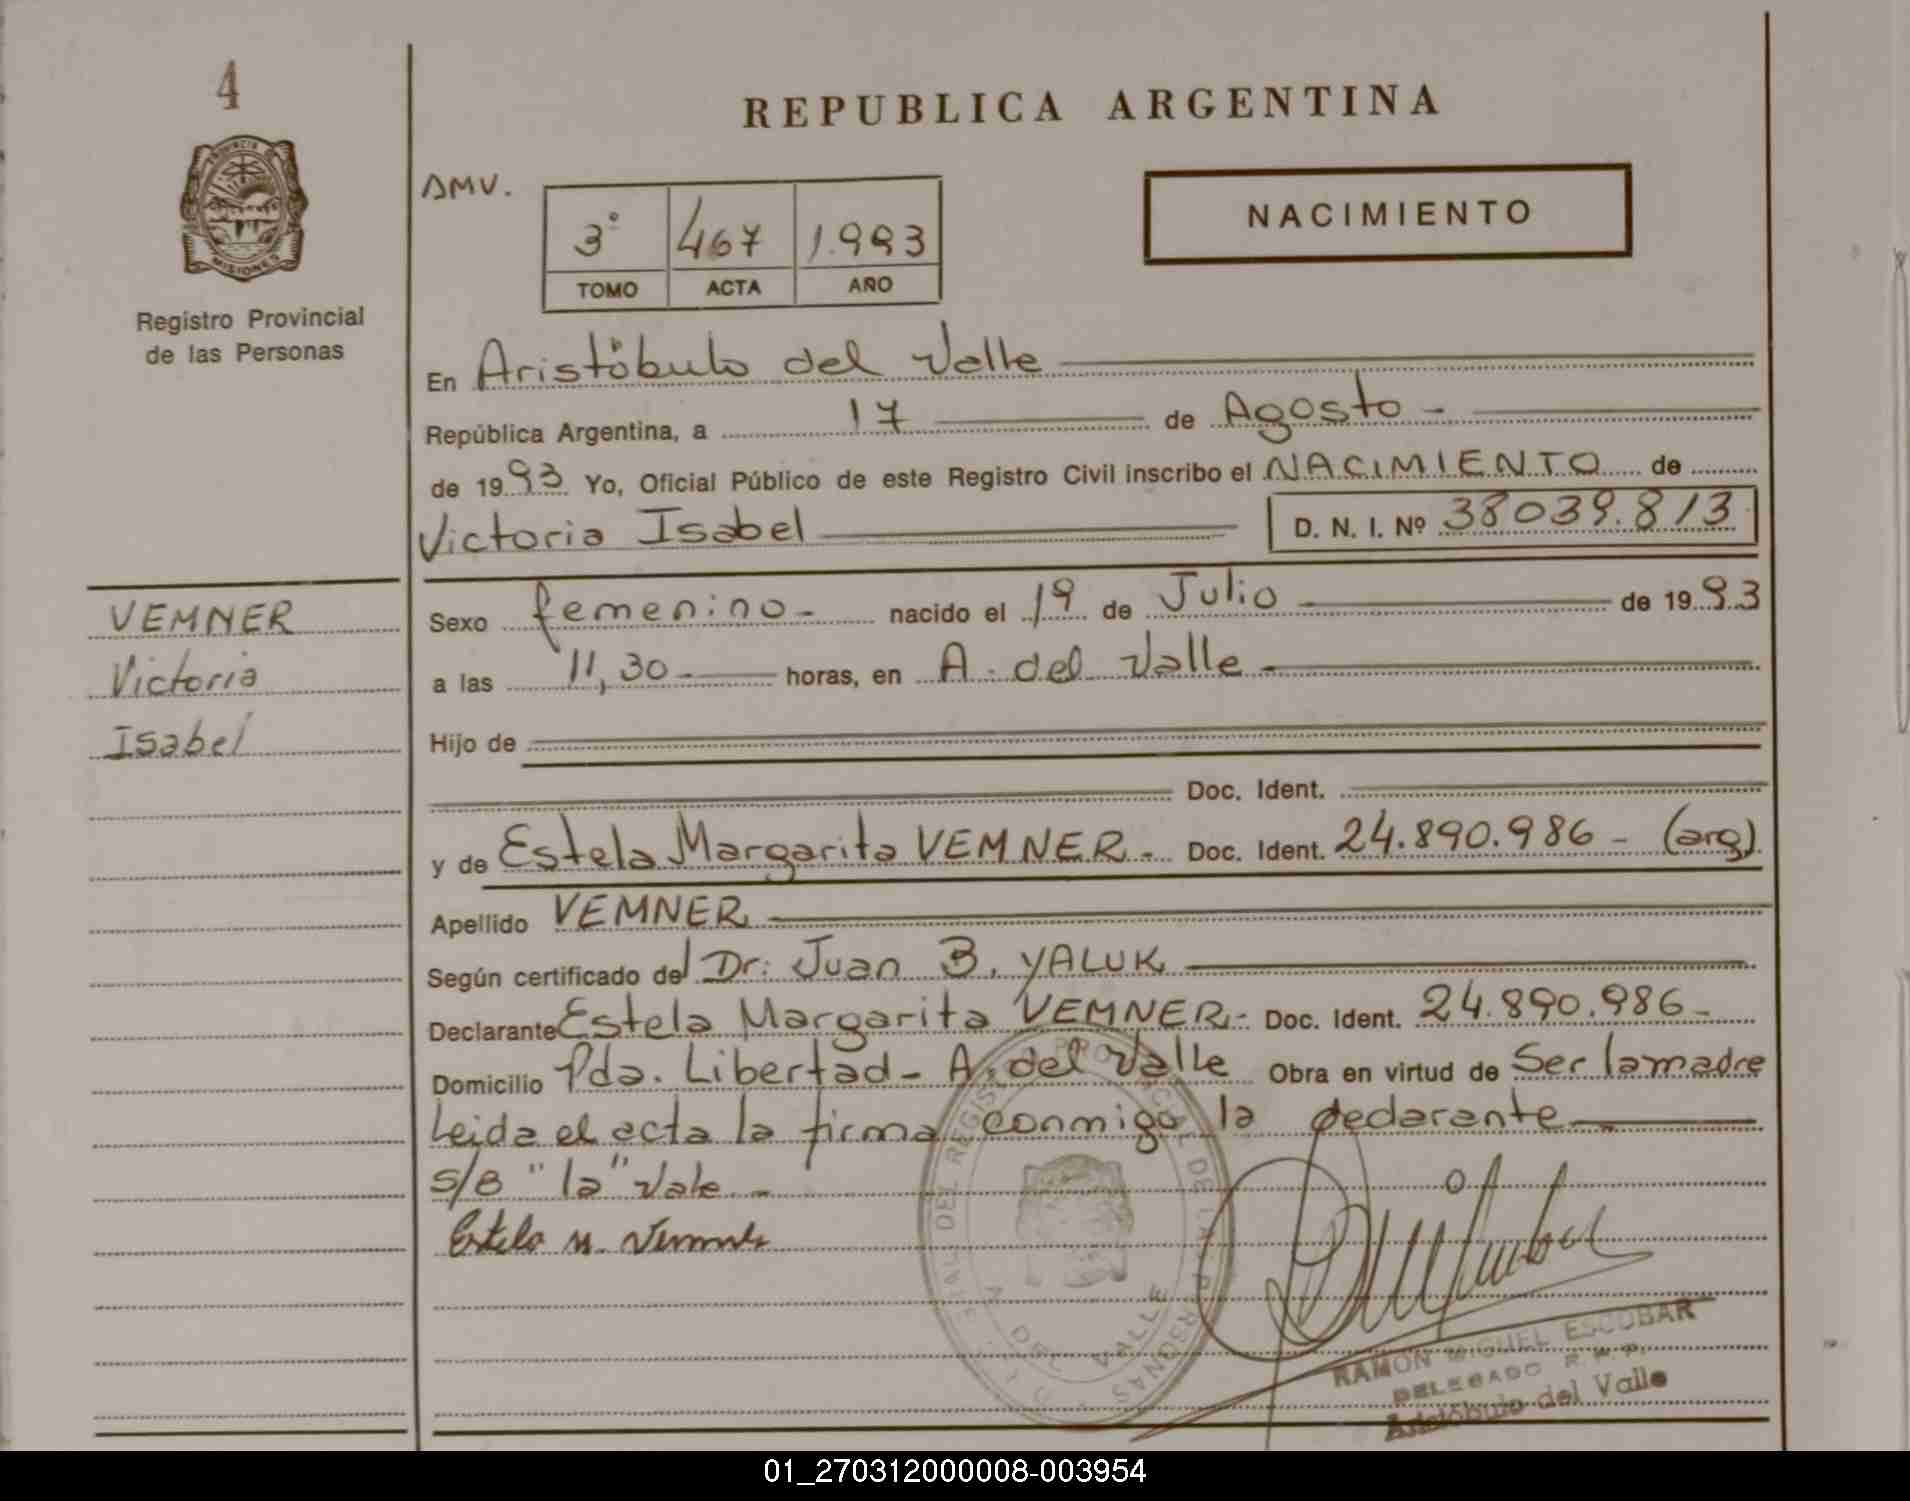 4
PROVINCIA DE
MISIONES
Registro Provincial
de las Personas
VEMNER
Victoria
Isabel
REPUBLICA ARGENTINA
AMV.
3° 467 1.993
TOMO ACTA AÑO
NACIMIENTO
En Aristóbulo del Valle
República Argentina, a 17 de Agosto -
de 1993 Yo, Oficial Público de este Registro Civil inscribo el NACIMIENTO de
Victoria Isabel D. N. I. Nº 38039.813
Sexo femenino - nacido el 19 de Julio de 1993
a las 11,30 - horas, en A. del Valle -
Hijo de
Doc. Ident.
y de Estela Margarita VEMNER - Doc. Ident. 24.890.986 - (arg)
Apellido VEMNER
Según certificado del Dr: Juan B. YALUK
Declarante Estela Margarita VEMNER - Doc. Ident. 24.890.986 -
Domicilio Pda. Libertad - A. del Valle Obra en virtud de Ser la madre
Leida el acta la firma conmigo la declarante
s/B "la" Vale -
Estela M. Vemner
PROVINCIAL DE LAS PERSONAS
DEL REGIS
A. DEL VALLE
RAMON MIGUEL ESCOBAR
DELEGADO R. P. P.
Aristóbulo del Valle
01_270312000008-003954